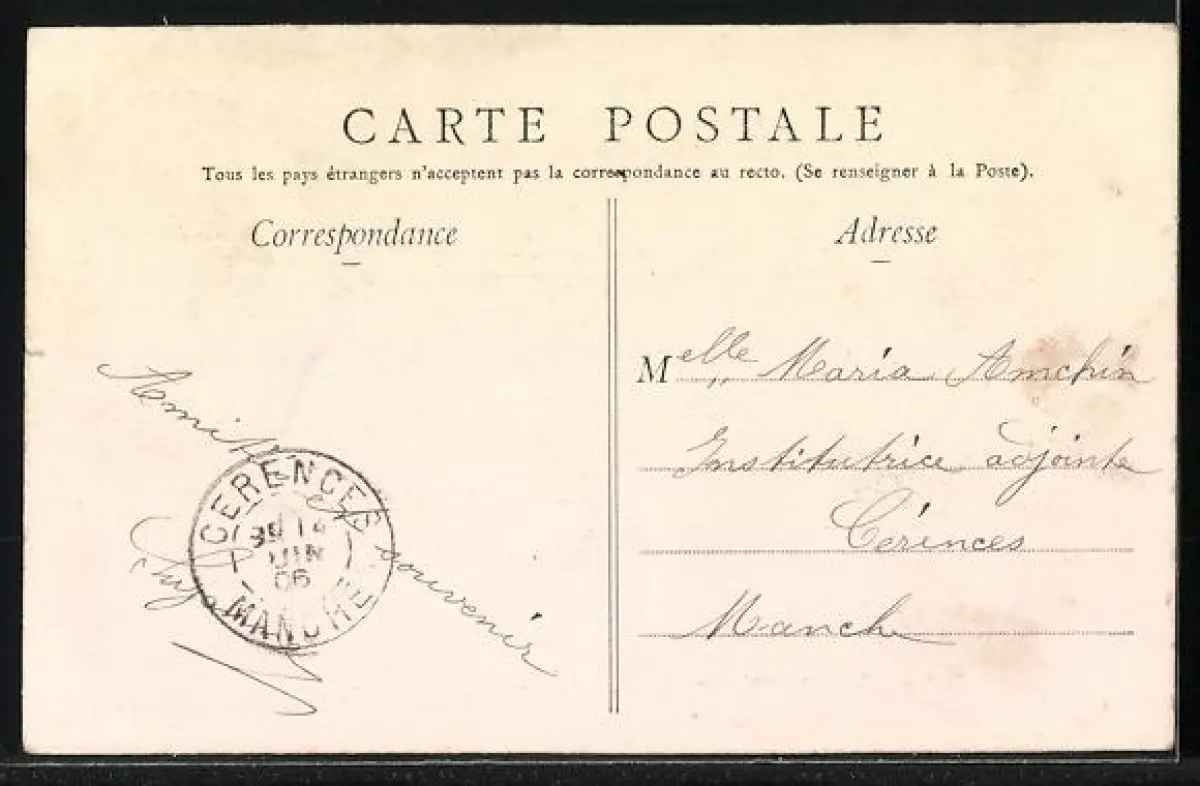 CARTE POSTALE
Tous les pays étrangers n'acceptent pas la correspondance au recto. (Se renseigner à la Poste).
Correspondance
Adresse
Melle Maria Amchin
Institutrice adjointe
Cérences
Manche
souvenir
CERENCES
14
JUIN
06
MANCHE